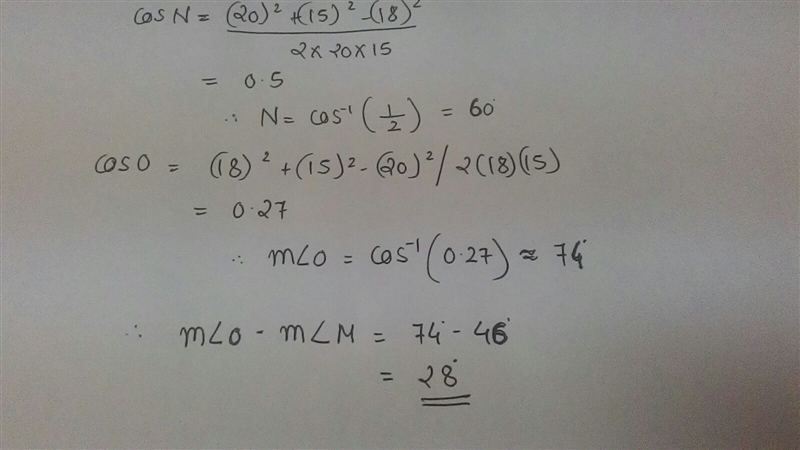 cos N = (20)² + (15)² - (18)² / 2 × 20 × 15
= 0.5
∴ N = cos⁻¹ (1/2) = 60°
cos O = (18)² + (15)² - (20)² / 2(18)(15)
= 0.27
∴ m∠O = cos⁻¹ (0.27) ≈ 74°
∴ m∠O - m∠M = 74° - 46°
= 28°